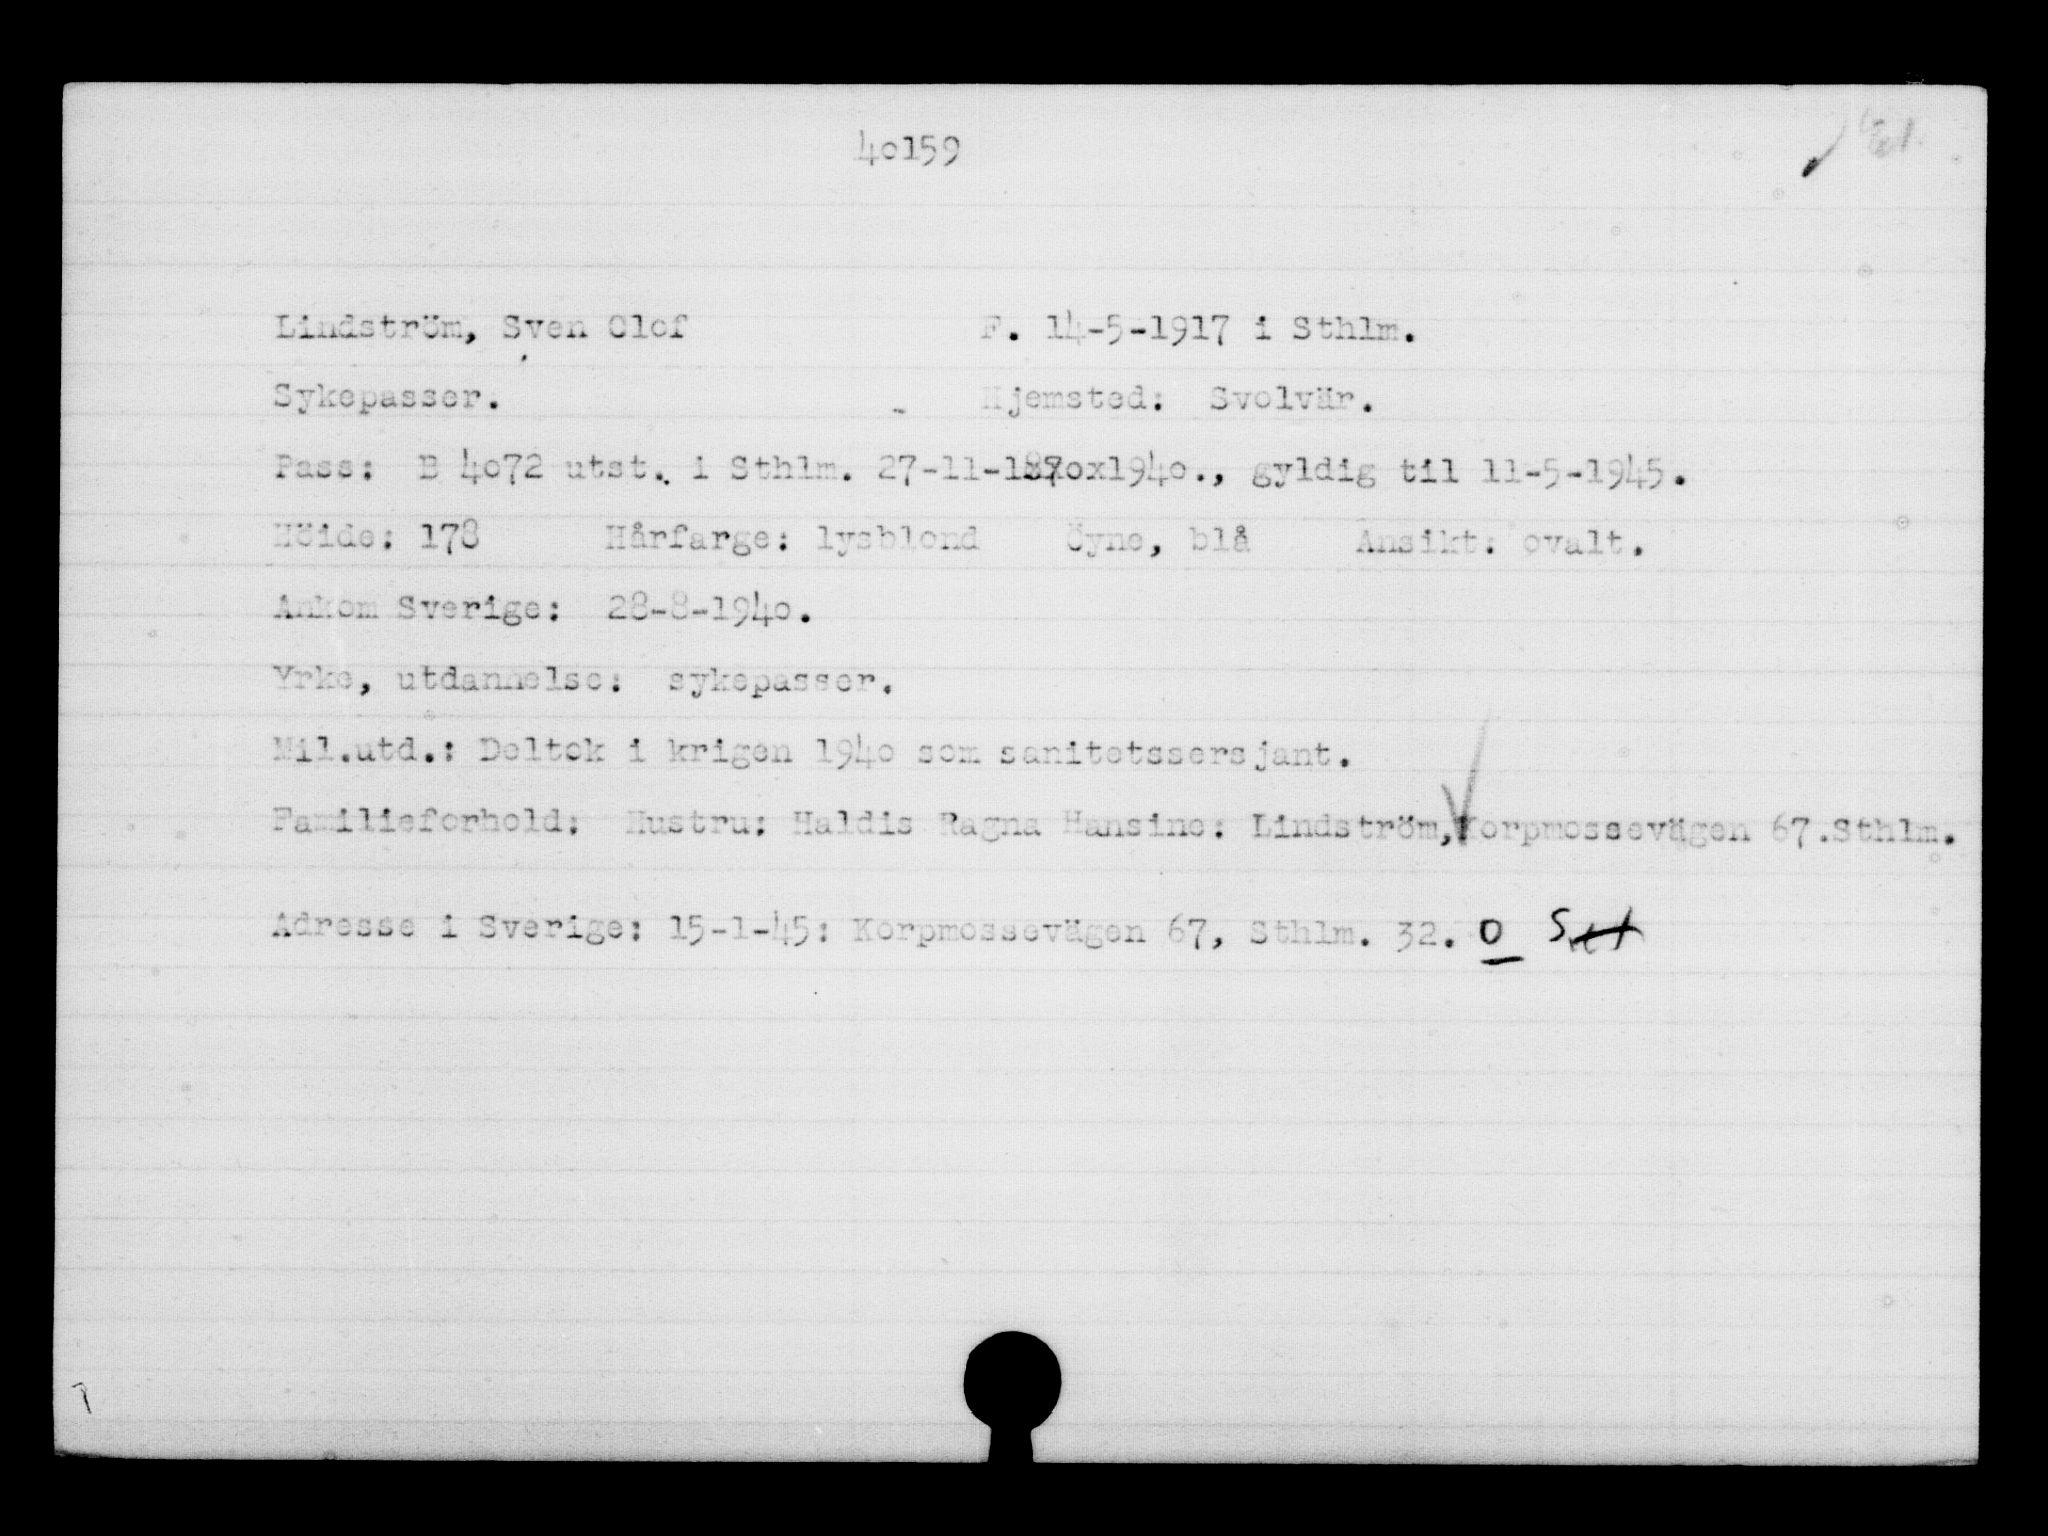 40159
Lindström, Sven Olof F. 14-5-1917 i Sthlm.
Sykepasser. Hjemsted: Svolvär.
Pass: B 4072 utst. i Sthlm. 27-11-1940., gyldig til 11-5-1945.
Höide: 178 Hårfarge: lysblond Öyne, blå Ansikt: ovalt.
Ankom Sverige: 28-8-1940.
Yrke, utdannelse: sykepasser.
Mil.utd.: Deltok i krigen 1940 som sanitetssersjant.
Familieforhold: Hustru: Haldis Ragna Hansine: Lindström, Korpmossevägen 67.Sthlm.
Adresse i Sverige: 15-1-45: Korpmossevägen 67, Sthlm. 32. O